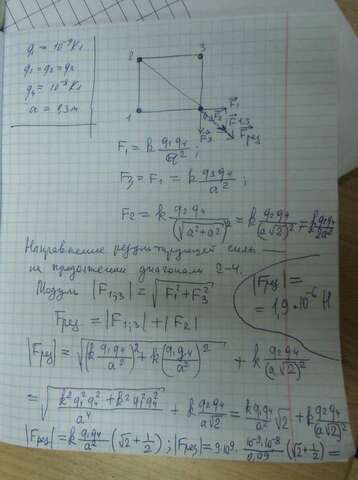 q = 10⁻⁹ Кл
q₁ = q₂ = q₃
q₄ = 10⁻⁸ Кл
a = 0,3 м
2 3
1 4
F₁
F₂ F₁,₃
F₃ Fрез
F₁ = k q₁q₄/a² ;
F₃ = F₁ = k q₃q₄/a² ;
F₂ = k q₂q₄/(√(a²+a²))² = k q₂q₄/(a√2)² = k q₂q₄/2a²
Направление результирующей силы —
на продолжении диагонали 2-4.
Модуль |F₁;₃| = √(F₁² + F₃²)
Fрез = |F₁;₃| + |F₂|
|Fрез| =
= 1,9·10⁻⁶ Н
|Fрез| = √((k q₁q₄/a²)² + k(q₃q₄/a²)²) + k q₂q₄/(a√2)²
= √((k²q₁²q₄² + k²q₃²q₄²)/a⁴) + k q₂q₄/a√2 = k q₁q₄/a² √2 + k q₂q₄/(a√2)²
|Fрез| = k q₁q₄/a² (√2 + 1/2) ; |Fрез| = 9·10⁹ · 10⁻⁹·10⁻⁸/0,09 (√2 + 1/2) =